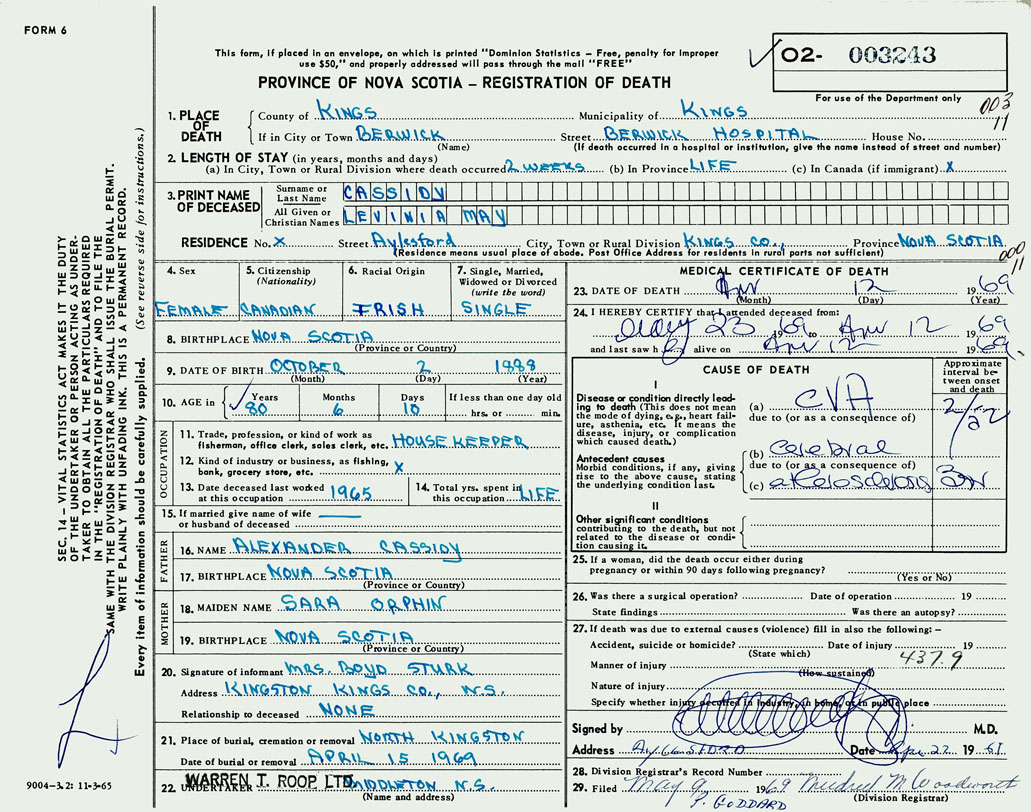 FORM 6
This form, if placed in an envelope, on which is printed "Dominion Statistics – Free, penalty for improper
use $50," and properly addressed will pass through the mail "FREE"
PROVINCE OF NOVA SCOTIA – REGISTRATION OF DEATH
02- 003243
For use of the Department only
003
11
1. PLACE OF DEATH
County of KINGS Municipality of KINGS
If in City or Town BERWICK Street BERWICK HOSPITAL House No.
(Name) (If death occurred in a hospital or institution, give the name instead of street and number)
2. LENGTH OF STAY (in years, months and days)
(a) In City, Town or Rural Division where death occurred 2 WEEKS (b) In Province LIFE (c) In Canada (if immigrant) X
3. PRINT NAME OF DECEASED
Surname or Last Name CASSIDY
All Given or Christian Names LEVINIA MAY
RESIDENCE No. X Street Aylesford City, Town or Rural Division KINGS CO., Province NOVA SCOTIA
(Residence means usual place of abode. Post Office Address for residents in rural parts not sufficient)
000
11
4. Sex
FEMALE
5. Citizenship (Nationality)
CANADIAN
6. Racial Origin
IRISH
7. Single, Married, Widowed or Divorced (write the word)
SINGLE
8. BIRTHPLACE NOVA SCOTIA
(Province or Country)
9. DATE OF BIRTH OCTOBER 2 1888
(Month) (Day) (Year)
10. AGE in
Years Months Days If less than one day old
80 6 10 hrs. or min.
OCCUPATION
11. Trade, profession, or kind of work as
fisherman, office clerk, sales clerk, etc. HOUSE KEEPER
12. Kind of industry or business, as fishing,
bank, grocery store, etc. X
13. Date deceased last worked at this occupation 1965
14. Total yrs. spent in this occupation LIFE
15. If married give name of wife
or husband of deceased
FATHER
16. NAME ALEXANDER CASSIDY
17. BIRTHPLACE NOVA SCOTIA
(Province or Country)
MOTHER
18. MAIDEN NAME SARA ORPHIN
19. BIRTHPLACE NOVA SCOTIA
(Province or Country)
20. Signature of informant MRS. BOYD STURK
Address KINGSTON KINGS CO., N.S.
Relationship to deceased NONE
21. Place of burial, cremation or removal NORTH KINGSTON
Date of burial or removal APRIL 15 1969
WARREN T. ROOP LTD.
22. UNDERTAKER MIDDLETON N.S.
(Name and address)
MEDICAL CERTIFICATE OF DEATH
23. DATE OF DEATH 12 1969
(Month) (Day) (Year)
24. I HEREBY CERTIFY that I attended deceased from:
23 1969 to 12 1969
and last saw h alive on 12 1969
CAUSE OF DEATH
Approximate interval between onset and death
I
Disease or condition directly leading to death (This does not mean the mode of dying, e.g., heart failure, asthenia, etc. It means the disease, injury, or complication which caused death.)
(a) CVA
due to (or as a consequence of)
Antecedent causes
Morbid conditions, if any, giving rise to the above cause, stating the underlying condition last.
(b) Cerebral
due to (or as a consequence of)
(c)
II
Other significant conditions
contributing to the death, but not related to the disease or condition causing it.
25. If a woman, did the death occur either during
pregnancy or within 90 days following pregnancy?
(Yes or No)
26. Was there a surgical operation? Date of operation 19
State findings Was there an autopsy?
27. If death was due to external causes (violence) fill in also the following: –
Accident, suicide or homicide? Date of injury 19
(State which) 437.9
Manner of injury
(How sustained)
Nature of injury
Specify whether injury occurred in industry, in home, or in public place
Signed by M.D.
Address Date 22 19
28. Division Registrar's Record Number
29. Filed May 9 1969 Mildred M Woodworth
(Division Registrar)
P. GODDARD
SEC. 14 – VITAL STATISTICS ACT MAKES IT THE DUTY
OF THE UNDERTAKER OR PERSON ACTING AS UNDER-
TAKER TO OBTAIN ALL THE PARTICULARS REQUIRED
IN THE "REGISTRATION OF DEATH" AND TO FILE THE
SAME WITH THE DIVISION REGISTRAR WHO SHALL ISSUE THE BURIAL PERMIT.
WRITE PLAINLY WITH UNFADING INK. THIS IS A PERMANENT RECORD.
Every item of information should be carefully supplied. (See reverse side for instructions.)
9004–3.2: 11-3-65